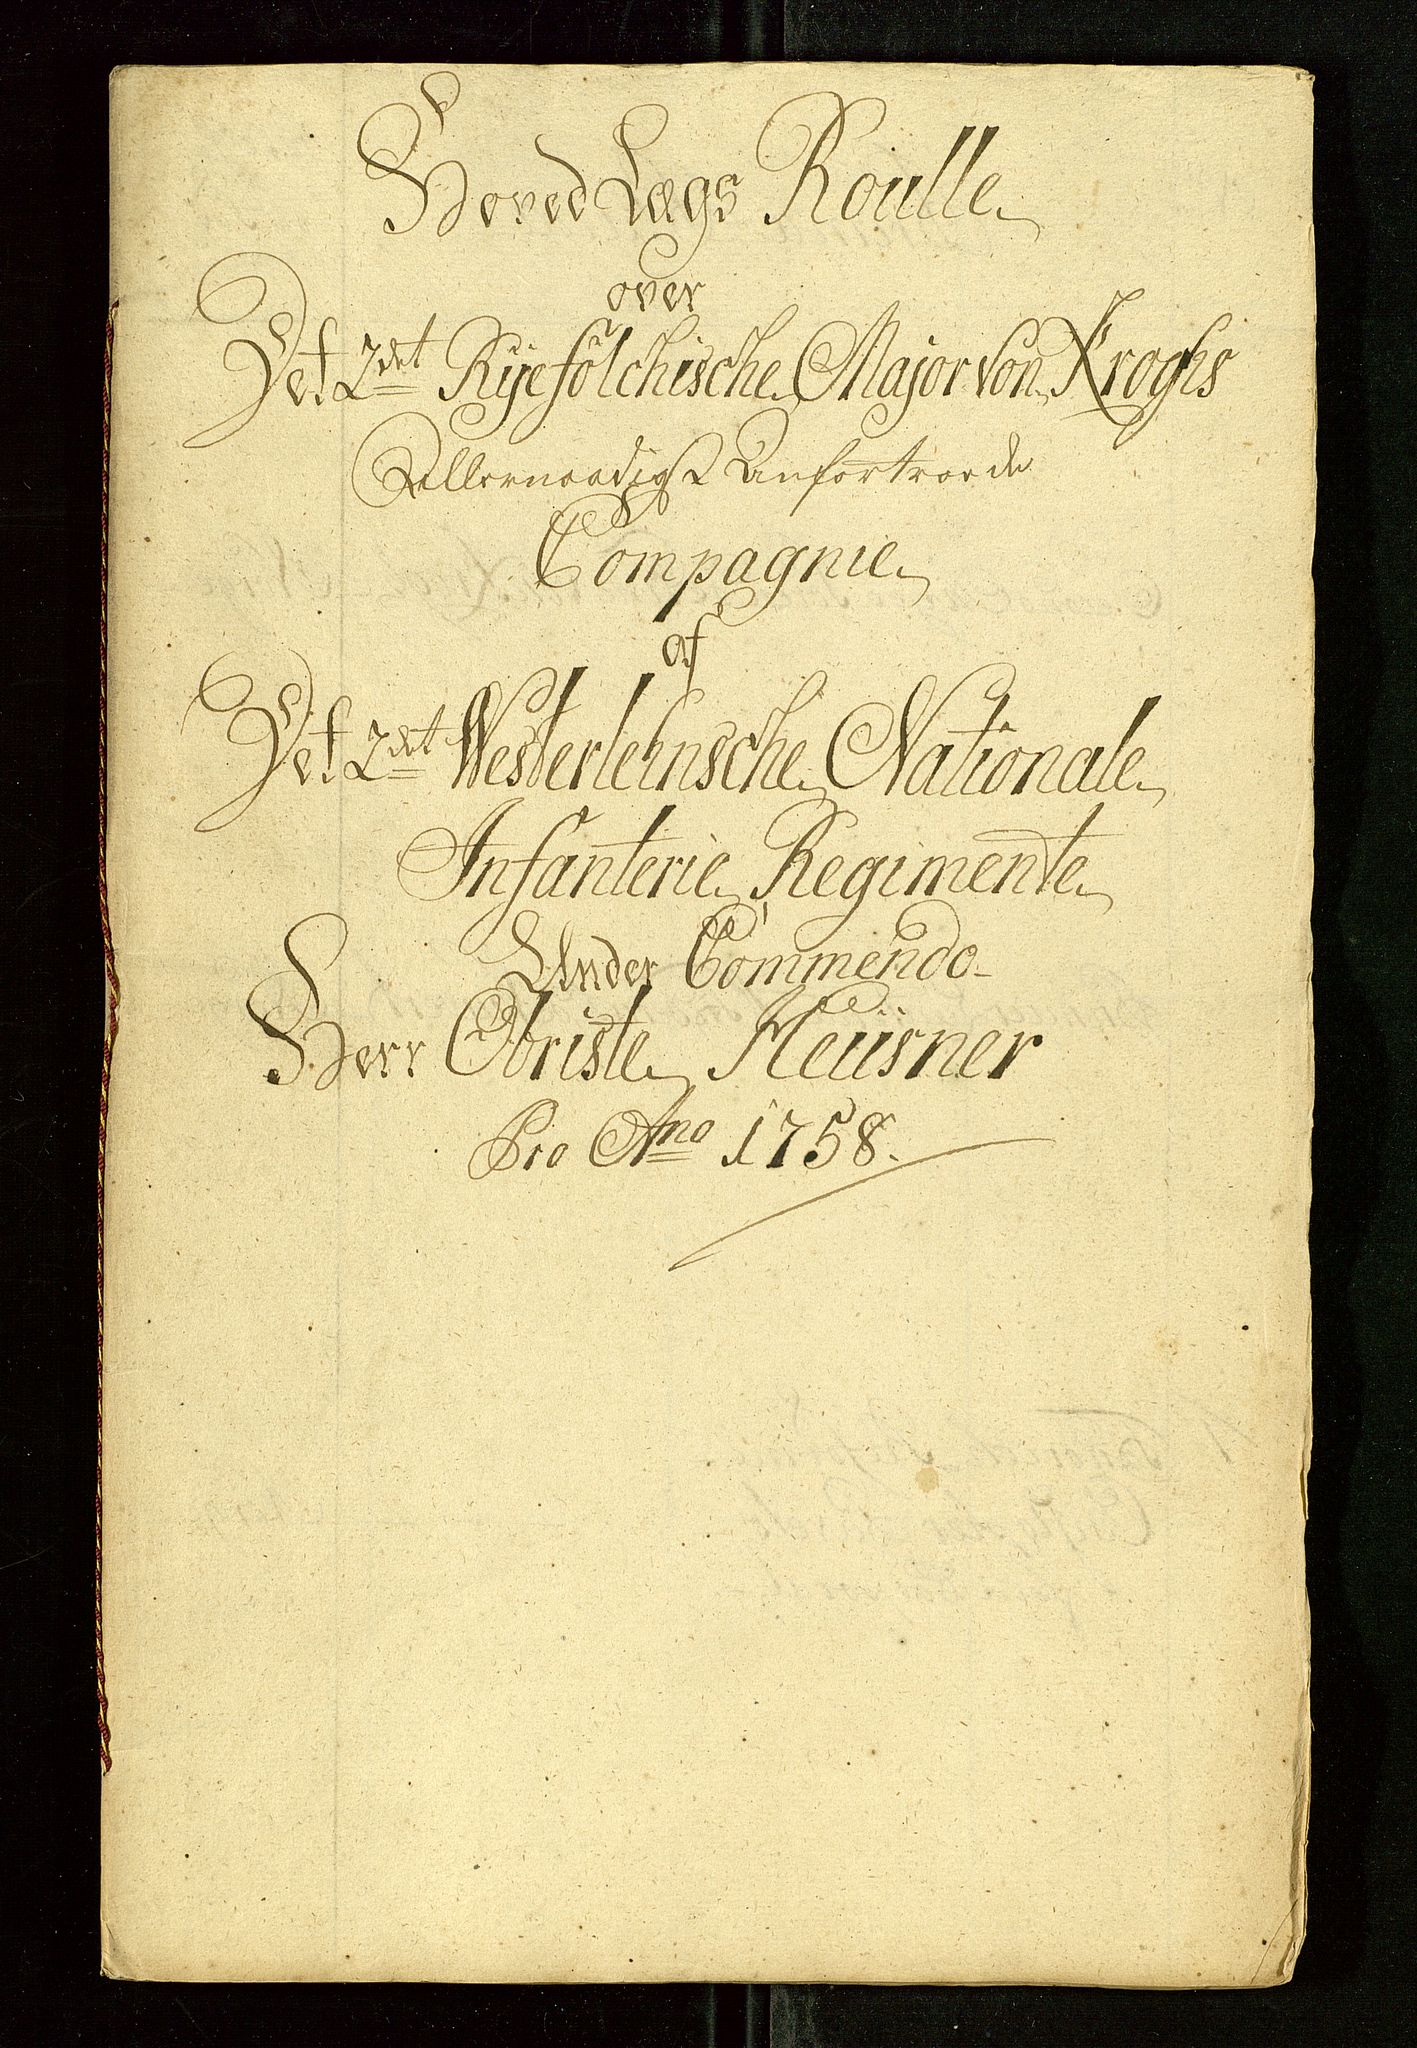 Hoved Lægs Roulle
over
Det 2det Ryefölchische Major von Kroghs
Allernaadigst Anfortroede
Compagnie
af
Det 2det Westerlehnsche Nationale
Infanterie Regimente
Under Commendo
Herr Obriste Heüsner
Pro Ano 1758.